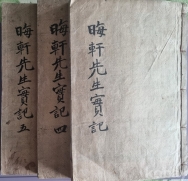 晦軒先生實記
晦軒先生實記 四
晦軒先生實記 五